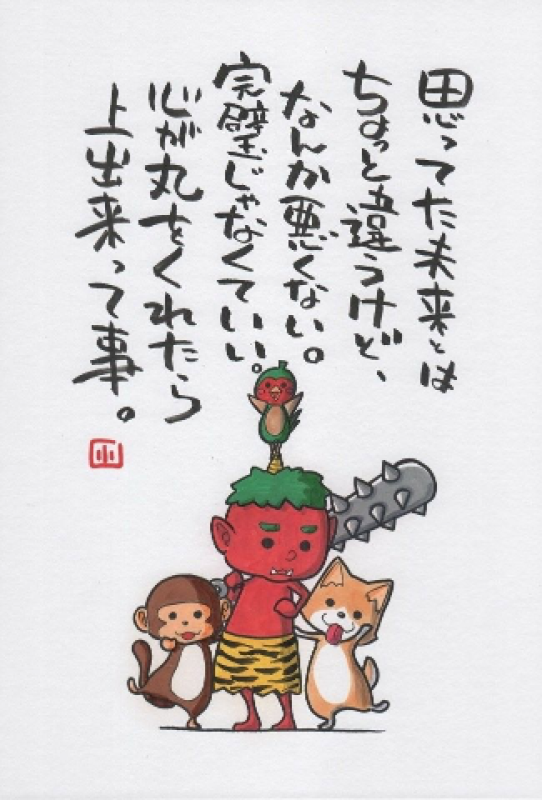 思ってた未来とは
ちょっと違うけど、
なんか悪くない。
完璧じゃなくていい。
心が丸をくれたら
上出来って事。